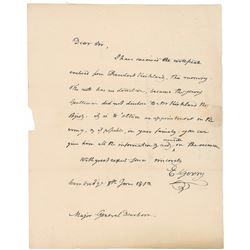 Dear Sir,
I have received the certificate
enclosed from President Kirkland, this morning.
The note has no direction, because the young
Gentleman did not disclose to Mr Kirkland the
object, of it to obtain an appointment in the
army, & if possible, on your family, you can
give him all the information, and, on the
With great respect yours sincerely
E Gerry
Cambridge 8th June 1812
Major General Dearborn